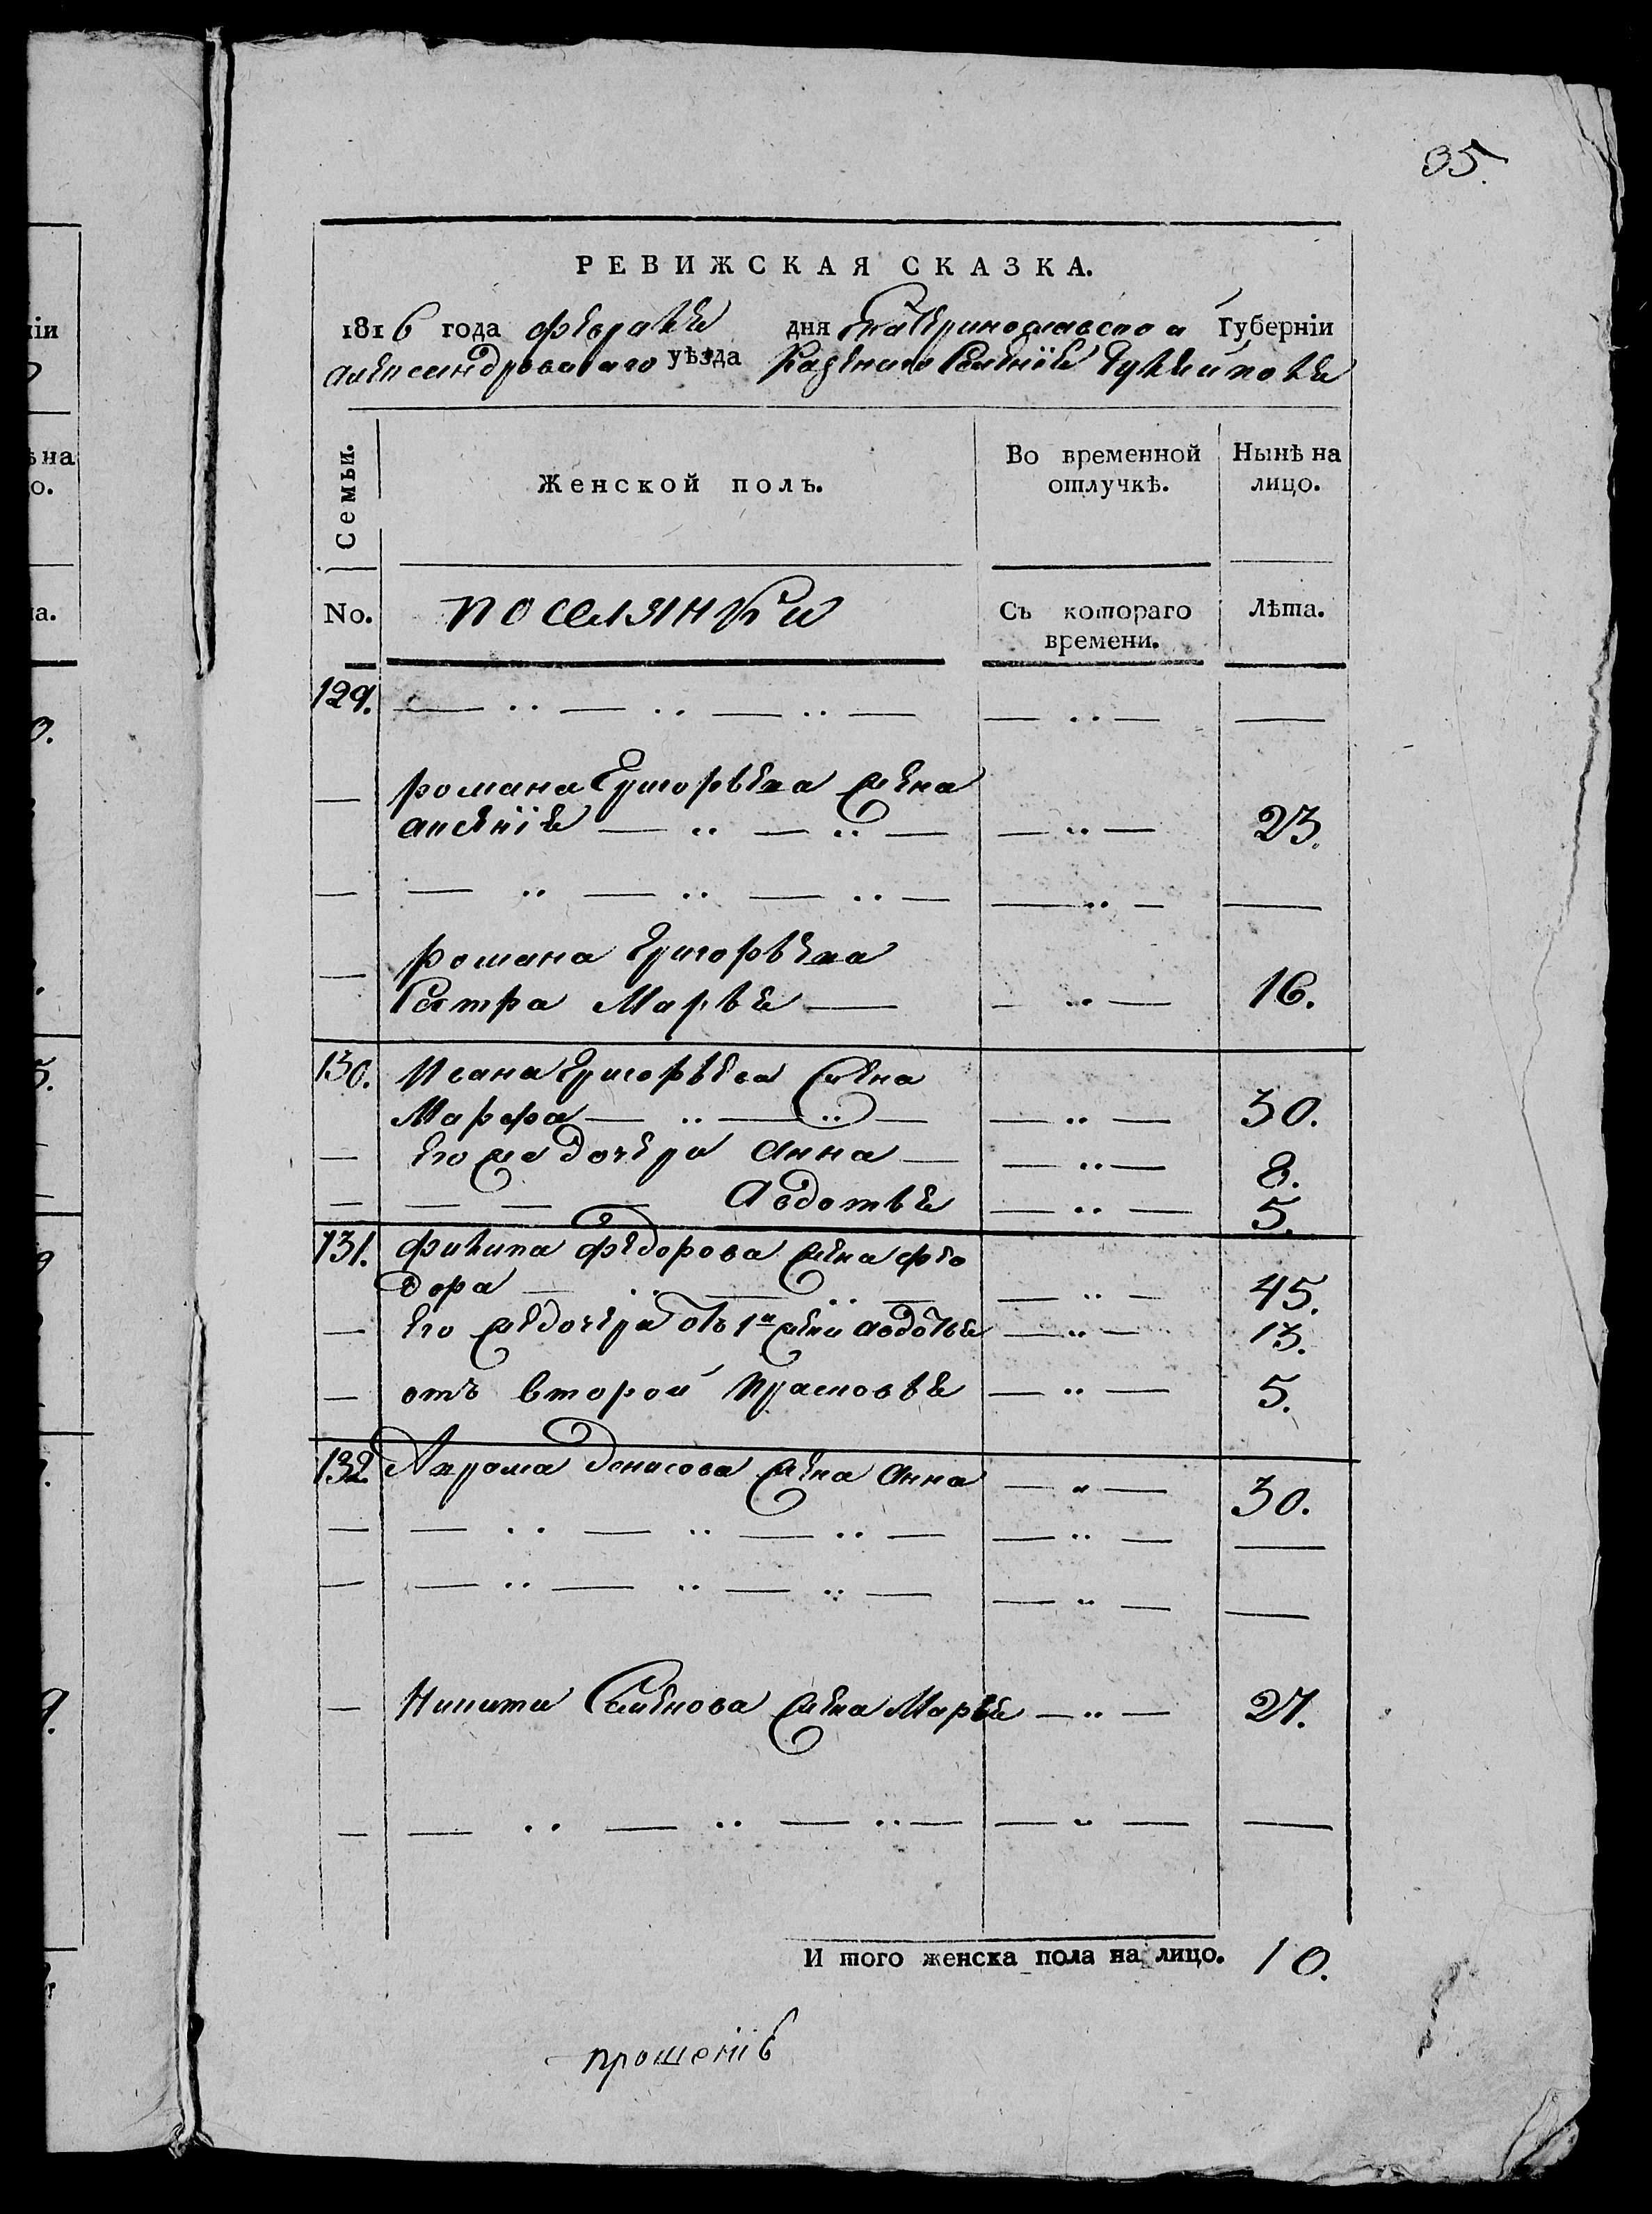 35.
РЕВИЖСКАЯ СКАЗКА.
1816 года февраля дня Екатеринославской Губерніи
александровскаго уѣзда Казеннаго Селенія Гуляйполя
Семьи.
Женской полъ.
Во временной отлучкѣ.
Нынѣ на лицо.
No.
поселянки
Съ котораго времени.
Лѣта.
129. — .. — .. — .. — — .. — —
— романа Григорьева жена
аксенія — .. — .. — — .. — 23.
— — .. — .. — .. — — .. — —
— романа Григорьева
Сестра Марья — — .. — 16.
130. Ивана Григорьева жена
Марфа — .. — .. — — .. — 30.
— его же дочери Анна — — .. — 8.
— — — — Авдотья — .. — 5.
131. филипа федорова жена фео
дора — .. — .. — — .. — 45.
— его же дочери отъ 1й жени авдотья — .. — 13.
— отъ второй прасковья — .. — 5.
132. Ахрома Денисова жена Анна — .. — 30.
— — .. — .. — .. — — .. — —
— — .. — .. — .. — — .. — —
— Никити Семенова жена Марья — .. — 27.
— — .. — .. — .. — — .. — —
И того женска пола на лицо. 10.
прошеніе